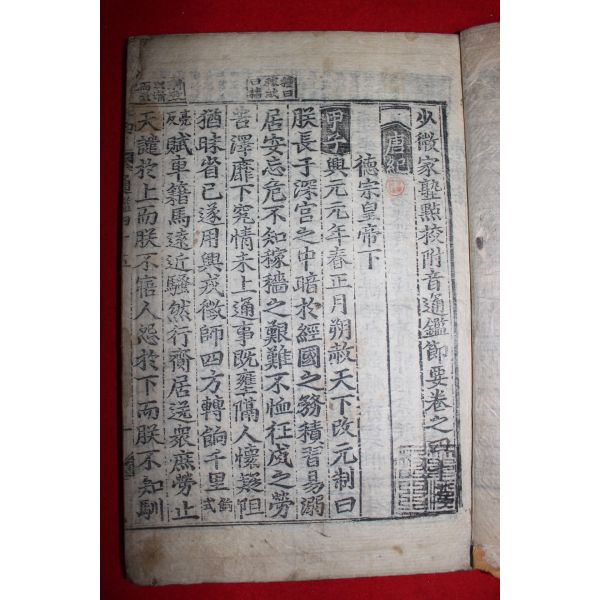 少微家塾點校附音通鑑節要卷之
唐紀
德宗皇帝下
甲子興元元年春正月朔赦天下改元制曰
朕長于深宫之中暗於經國之務積習易溺
居安忘危不知稼穡之艱難不恤征戍之勞
苦澤靡下究情未上通事旣壅隔人懷疑阻
猶昧省己遂用興戎徵師四方轉餉千里餉式
亮反賦車籍馬遠近騷然行齎居送衆庶勞止
天譴於上而朕不寤人怨於下而朕不知馴
種曰稼歛曰穡